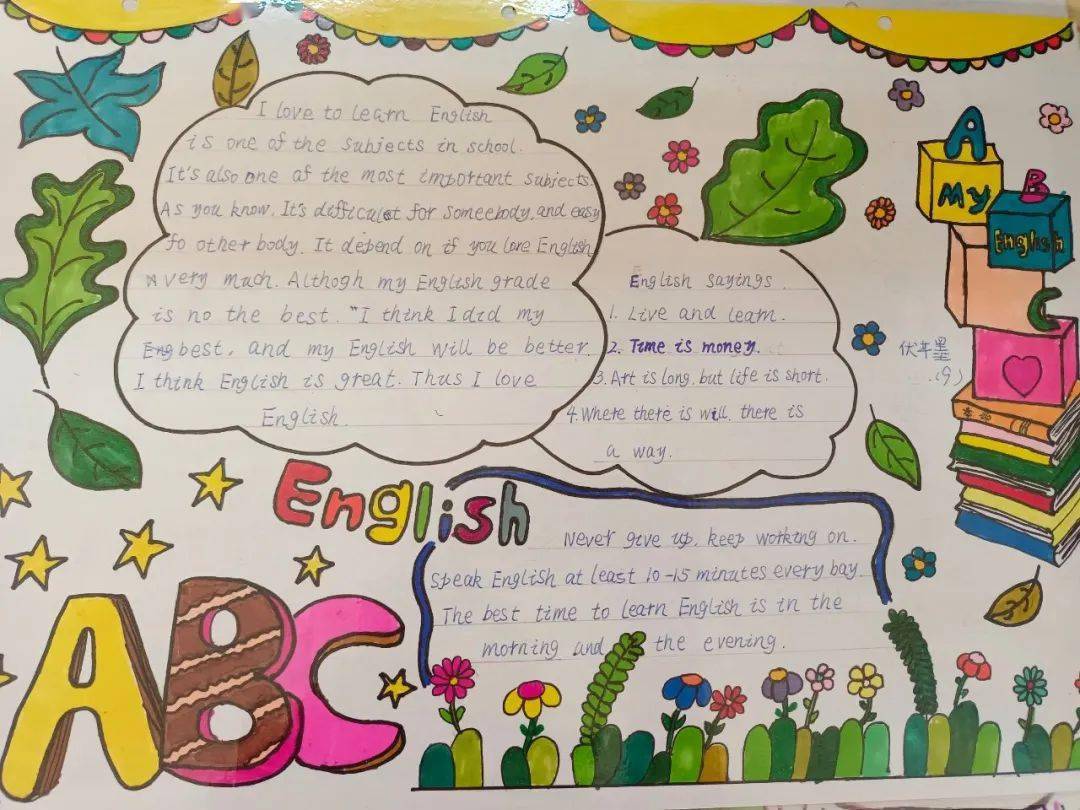 I love to learn English
is one of the subjects in school.
It's also one of the most important subjects.
As you know. It's difficulet for someebody, and easy
fo other body. It depend on if you love English
very much. Althogh my English grade
is no the best. "I think I did my
Eng best, and my English will be better.
I think English is great. Thus I love
English.
English sayings.
1. Live and learn.
2. Time is money.
3. Art is long, but life is short.
4. Where there is will, there is
a way.
A
My
B
English
C
(9)
English
Never give up, keep working on.
Speak English at least 10-15 minutes every bay
The best time to learn English is in the
morning and the evening.
ABC